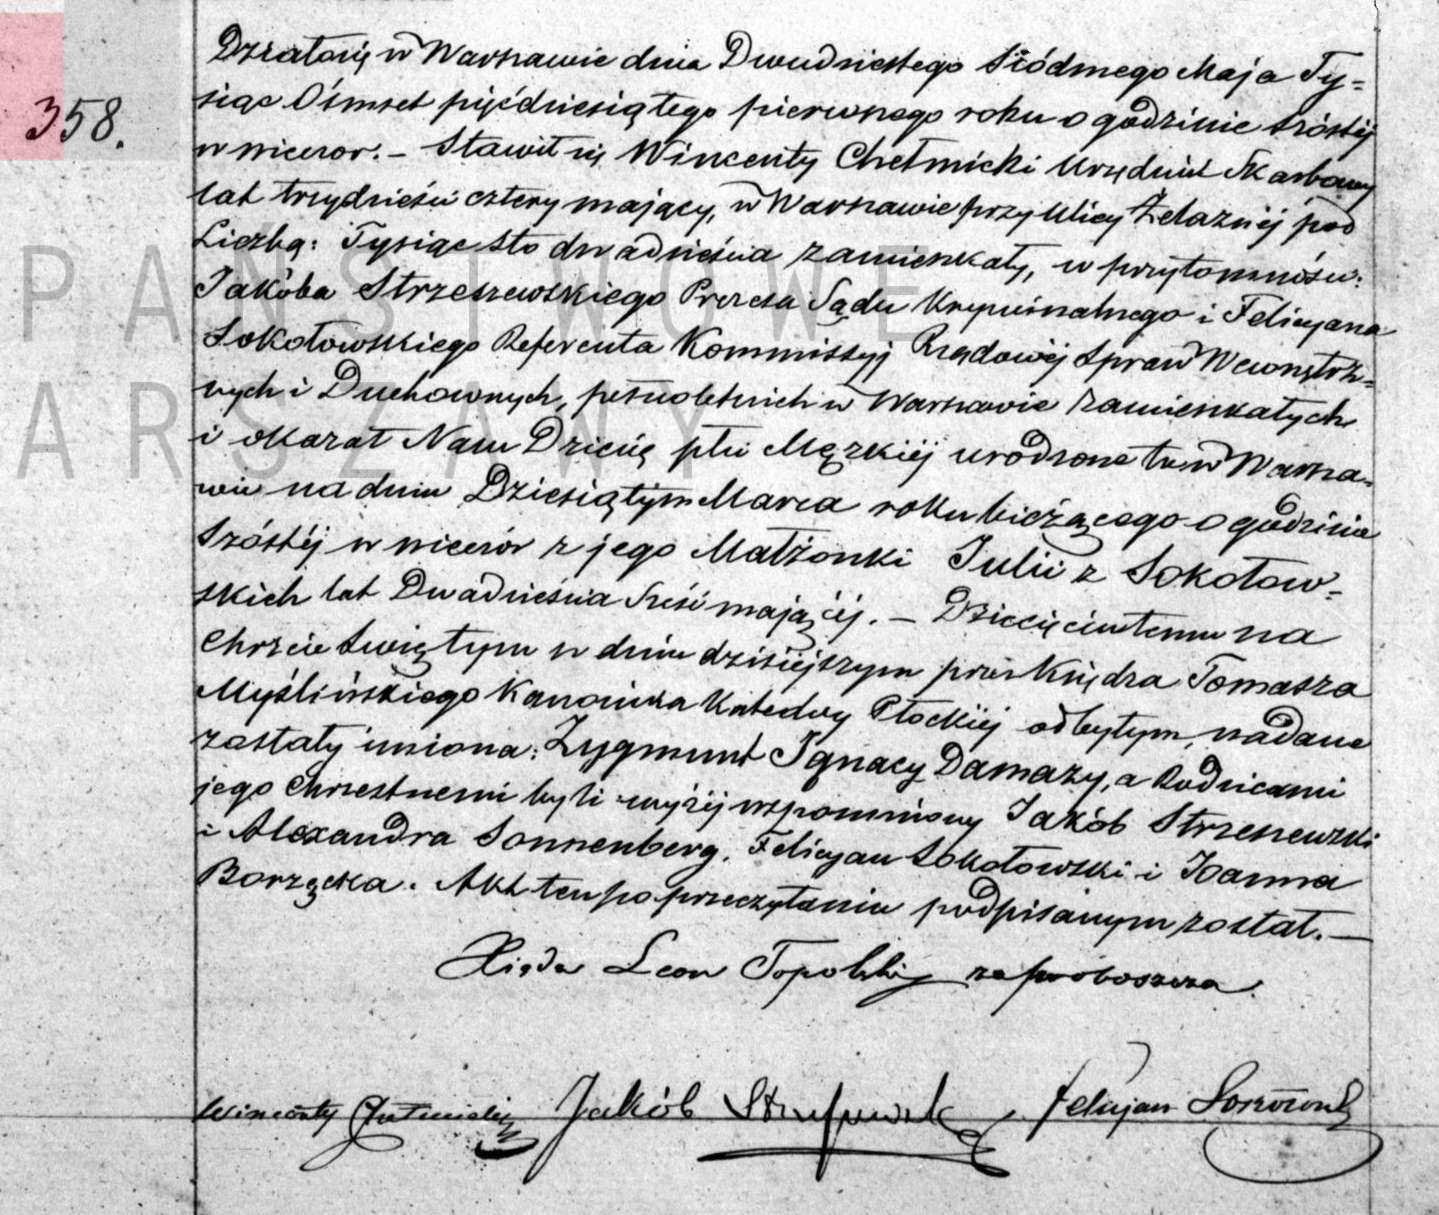 Działo się w Warszawie dnia Dwudziestego Siódmego Maja Ty-
358.
siąc Ośmset pięćdziesiątego pierwszego roku o godzinie szóstej
w wieczor. – Stawił się Wincenty Chełmicki Urzędnik Skarbowy
lat trzydzieści cztery mający, w Warszawie przy Ulicy Żelaznej pod
Liczbą: Tysiąc sto dwadzieścia zamieszkały, w przytomności:
PAŃSTWOWE
Jakóba Strzeszewskiego Prezesa Sądu Kryminalnego i Felicyana
Sokołowskiego Referenta Kommissyj Rządowéj Spraw Wewnętrz-
nych i Duchownych, pełnoletnich w Warszawie zamieszkałych
ARSZAWY
i okazał Nam Dziecię płci Męzkiéj urodzone tu w Warsza-
wie na dniu Dziesiątym Marca roku bieżącego o godzinie
Szóstéj w wieczór z jego Małżonki Julii z Sokołow-
skich lat Dwadzieścia Sześć mającéj. – Dziecięciu temu na
Chrzcie Świętym w dniu dzisiéjszym przez Księdza Tomasza
Myślińskiego Kanonika Katedry Płockiéj odbytym, nadane
zostały imiona: Zygmunt Ignacy Damazy, a Rodzicami
jego Chrzestnemi byli wyżéj wspomniony Jakób Strzeszewski
i Alexandra Sonnenberg. Felicyan Sokołowski i Joanna
Borzęcka. Akt ten po przeczytaniu podpisanym został. –
Xiądz Leon Topolski za proboszcza.
Wincenty Chełmicki Jakób Strzeszewski Felicyan Sokołowski